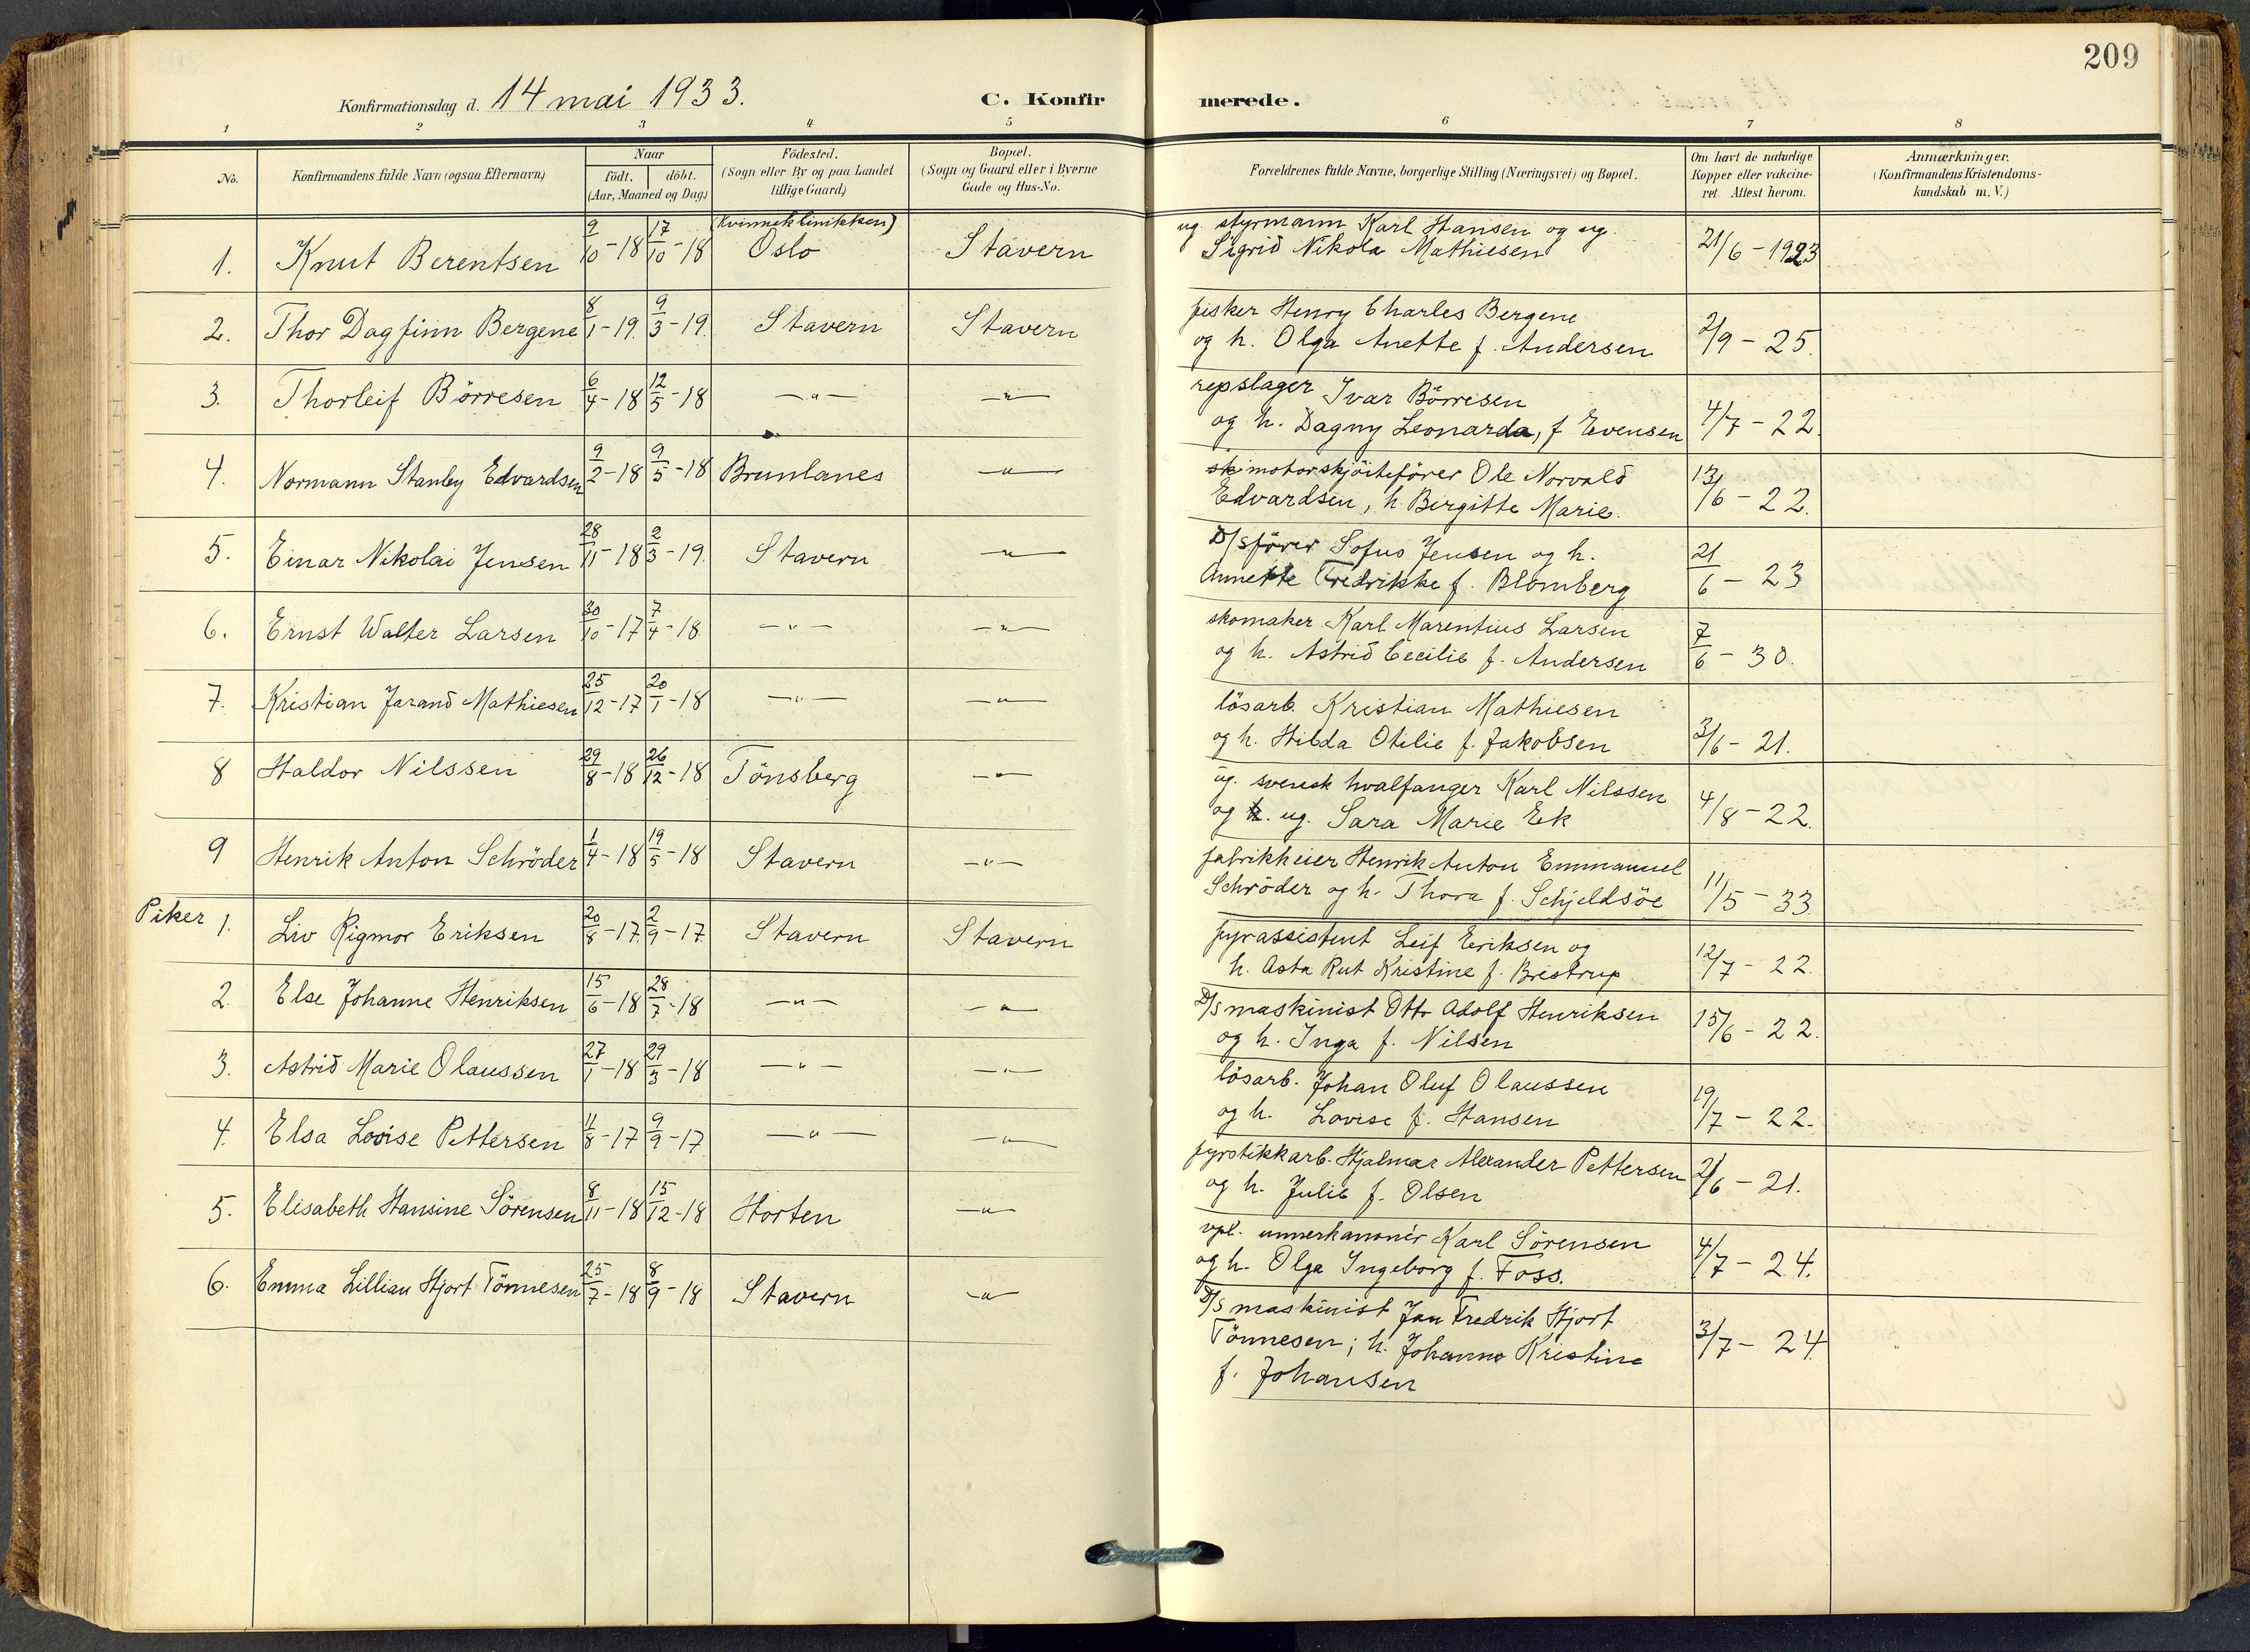 209
Konfirmationsdag d. 14 mai 1933.
C. Konfirmerede.
1 2 3 4 5 6 7 8
No.
Konfirmandens fulde Navn (ogsaa Efternavn)
Naar
födt. döbt.
(Aar, Maaned og Dag)
Födested.
(Sogn eller By og paa Landet
tillige Gaard)
Bopæl.
(Sogn og Gaard eller i Byerne
Gade og Hus-No.
Forældrenes fulde Navne, borgerlige Stilling (Næringsvei) og Bopæl.
Om havt de naturlige
Kopper eller vakcine-
ret. Attest herom.
Anmærkninger.
(Konfirmandens Kristendoms-
kundskab m. V.)
1. Knut Berentsen 9/10-18 17/10-18 (Kvinneklinikken) Oslo Stavern
ug. styrmann Karl Hansen og ug.
Sigrid Nikola Mathiesen 21/6-1923
2. Thor Dagfinn Bergene 8/1-19. 9/3-19. Stavern Stavern
fisker Henry Charles Bergene
og h. Olga Anette f. Andersen 2/9-25.
3. Thorleif Börresen 6/4-18 12/5-18 —"— —"—
repslager Ivar Börresen
og h. Dagny Leonarda, f Evensen 4/7-22.
4. Normann Stanley Edvardsen 9/2-18 9/5-18 Brunlanes —"—
motorskjöitefører Ole Norvald
Edvardsen, h. Birgitte Marie. 13/6-22.
5. Einar Nikolai Jensen 28/11-18 2/3-19. Stavern —"—
D/Sförer Sofus Jensen og h.
Annette Fredrikke f. Blomberg 21/6-23
6. Ernst Walter Larsen 30/10-17 7/4-18. —"— —"—
skomaker Karl Marentius Larsen
og h. Astrid Cecilie f. Andersen 7/6-30.
7. Kristian Jarand Mathiesen 25/12-17 20/1-18 —"— —"—
lösarb. Kristian Mathiesen
og h. Hilda Otilie f. Jakobsen 3/6-21.
8 Haldor Nilssen 29/8-18 26/12-18 Tönsberg —"—
ug. svensk hvalfanger Karl Nilssen
og h. ug. Sara Marie Ek 4/8-22.
9 Henrik Anton Schröder 1/4-18 19/5-18 Stavern —"—
fabrikkeier Henrik Anton Emmanuel
Schröder og h. Thora f. Schjeldsöe 11/5-33
Piker 1. Liv Rigmor Eriksen 20/8-17. 2/9-17 Stavern Stavern
fyrassistent Leif Eriksen og
h. Asta Rut Kristine f. Brestrup 12/7-22.
2. Else Johanne Henriksen 15/6-18 28/7-18 —"— —"—
D/S maskinist Otto Adolf Henriksen
og h. Inga f. Nilsen 15/6-22.
3. Astrid Marie Olaussen 27/1-18 29/3-18 —"— —"—
lösarb. Johan Oluf Olaussen
og h. Lovise f. Hansen 19/7-22.
4. Elsa Lovise Pettersen 11/8-17 9/9-17 —"— —"—
fyrstikkarb. Hjalmar Alexander Pettersen
og h. Julie f. Olsen 2/6-21.
5. Elisabeth Hansine Sörensen 8/11-18 15/12-18 Horten —"—
vpl. unnerkanonér Karl Sörensen
og h. Olga Ingeborg f. Foss. 4/7-24.
6. Emma Lillian Hjort Tönnesen 25/7-18 8/9-18 Stavern —"—
D/S maskinist Jan Fredrik Hjort
Tönnesen; h. Johanne Kristine
f. Johansen 3/7-24.